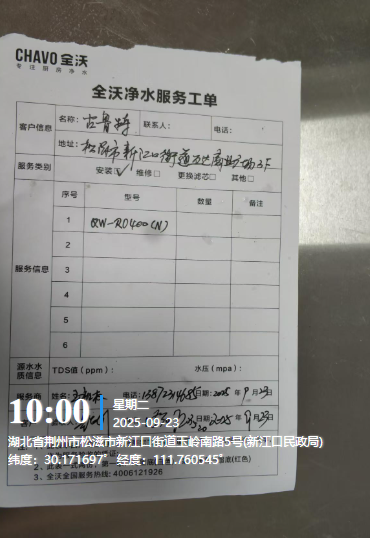 CHAVO 全沃
专注厨房净水
全沃净水服务工单
客户信息
名称：古鲁特 联系人： 电话：
地址：松滋市新江口街道万达广场3F
服务类别 安装☑ 维修□ 更换滤芯□ 其他□
服务信息
序号 型号 数量 备注
1 QW-RO400(N)
2
3
4
5
6
源水水质信息 TDS值（ppm）： 水压（mpa）：
服务商 姓名： 电话： 日期：2025年9月23日
日期：2025年9月23日
10:00 星期二
2025-09-23
湖北省荆州市松滋市新江口街道玉岭南路5号(新江口民政局)
纬度：30.171697° 经度：111.760545°
3、全沃全国服务热线：4006121926